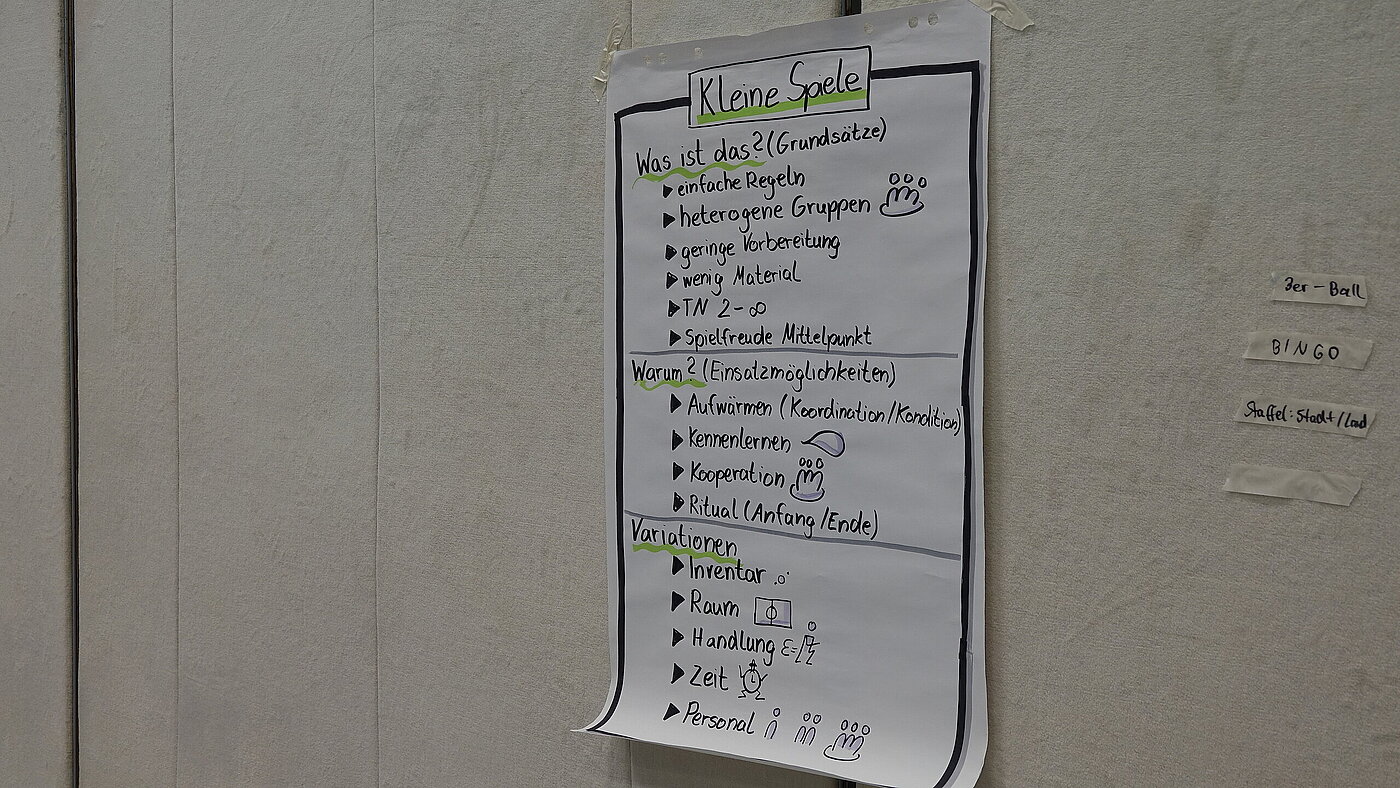 Kleine Spiele
Was ist das? (Grundsätze)
einfache Regeln
heterogene Gruppen
geringe Vorbereitung
wenig Material
TN 2-∞
Spielfreude Mittelpunkt
Warum? (Einsatzmöglichkeiten)
Aufwärmen (Koordination/Kondition)
Kennenlernen
Kooperation
Ritual (Anfang/Ende)
Variationen
Inventar
Raum
Handlung
Zeit
Personal
3er-Ball
BINGO
Staffel: Stadt/Land